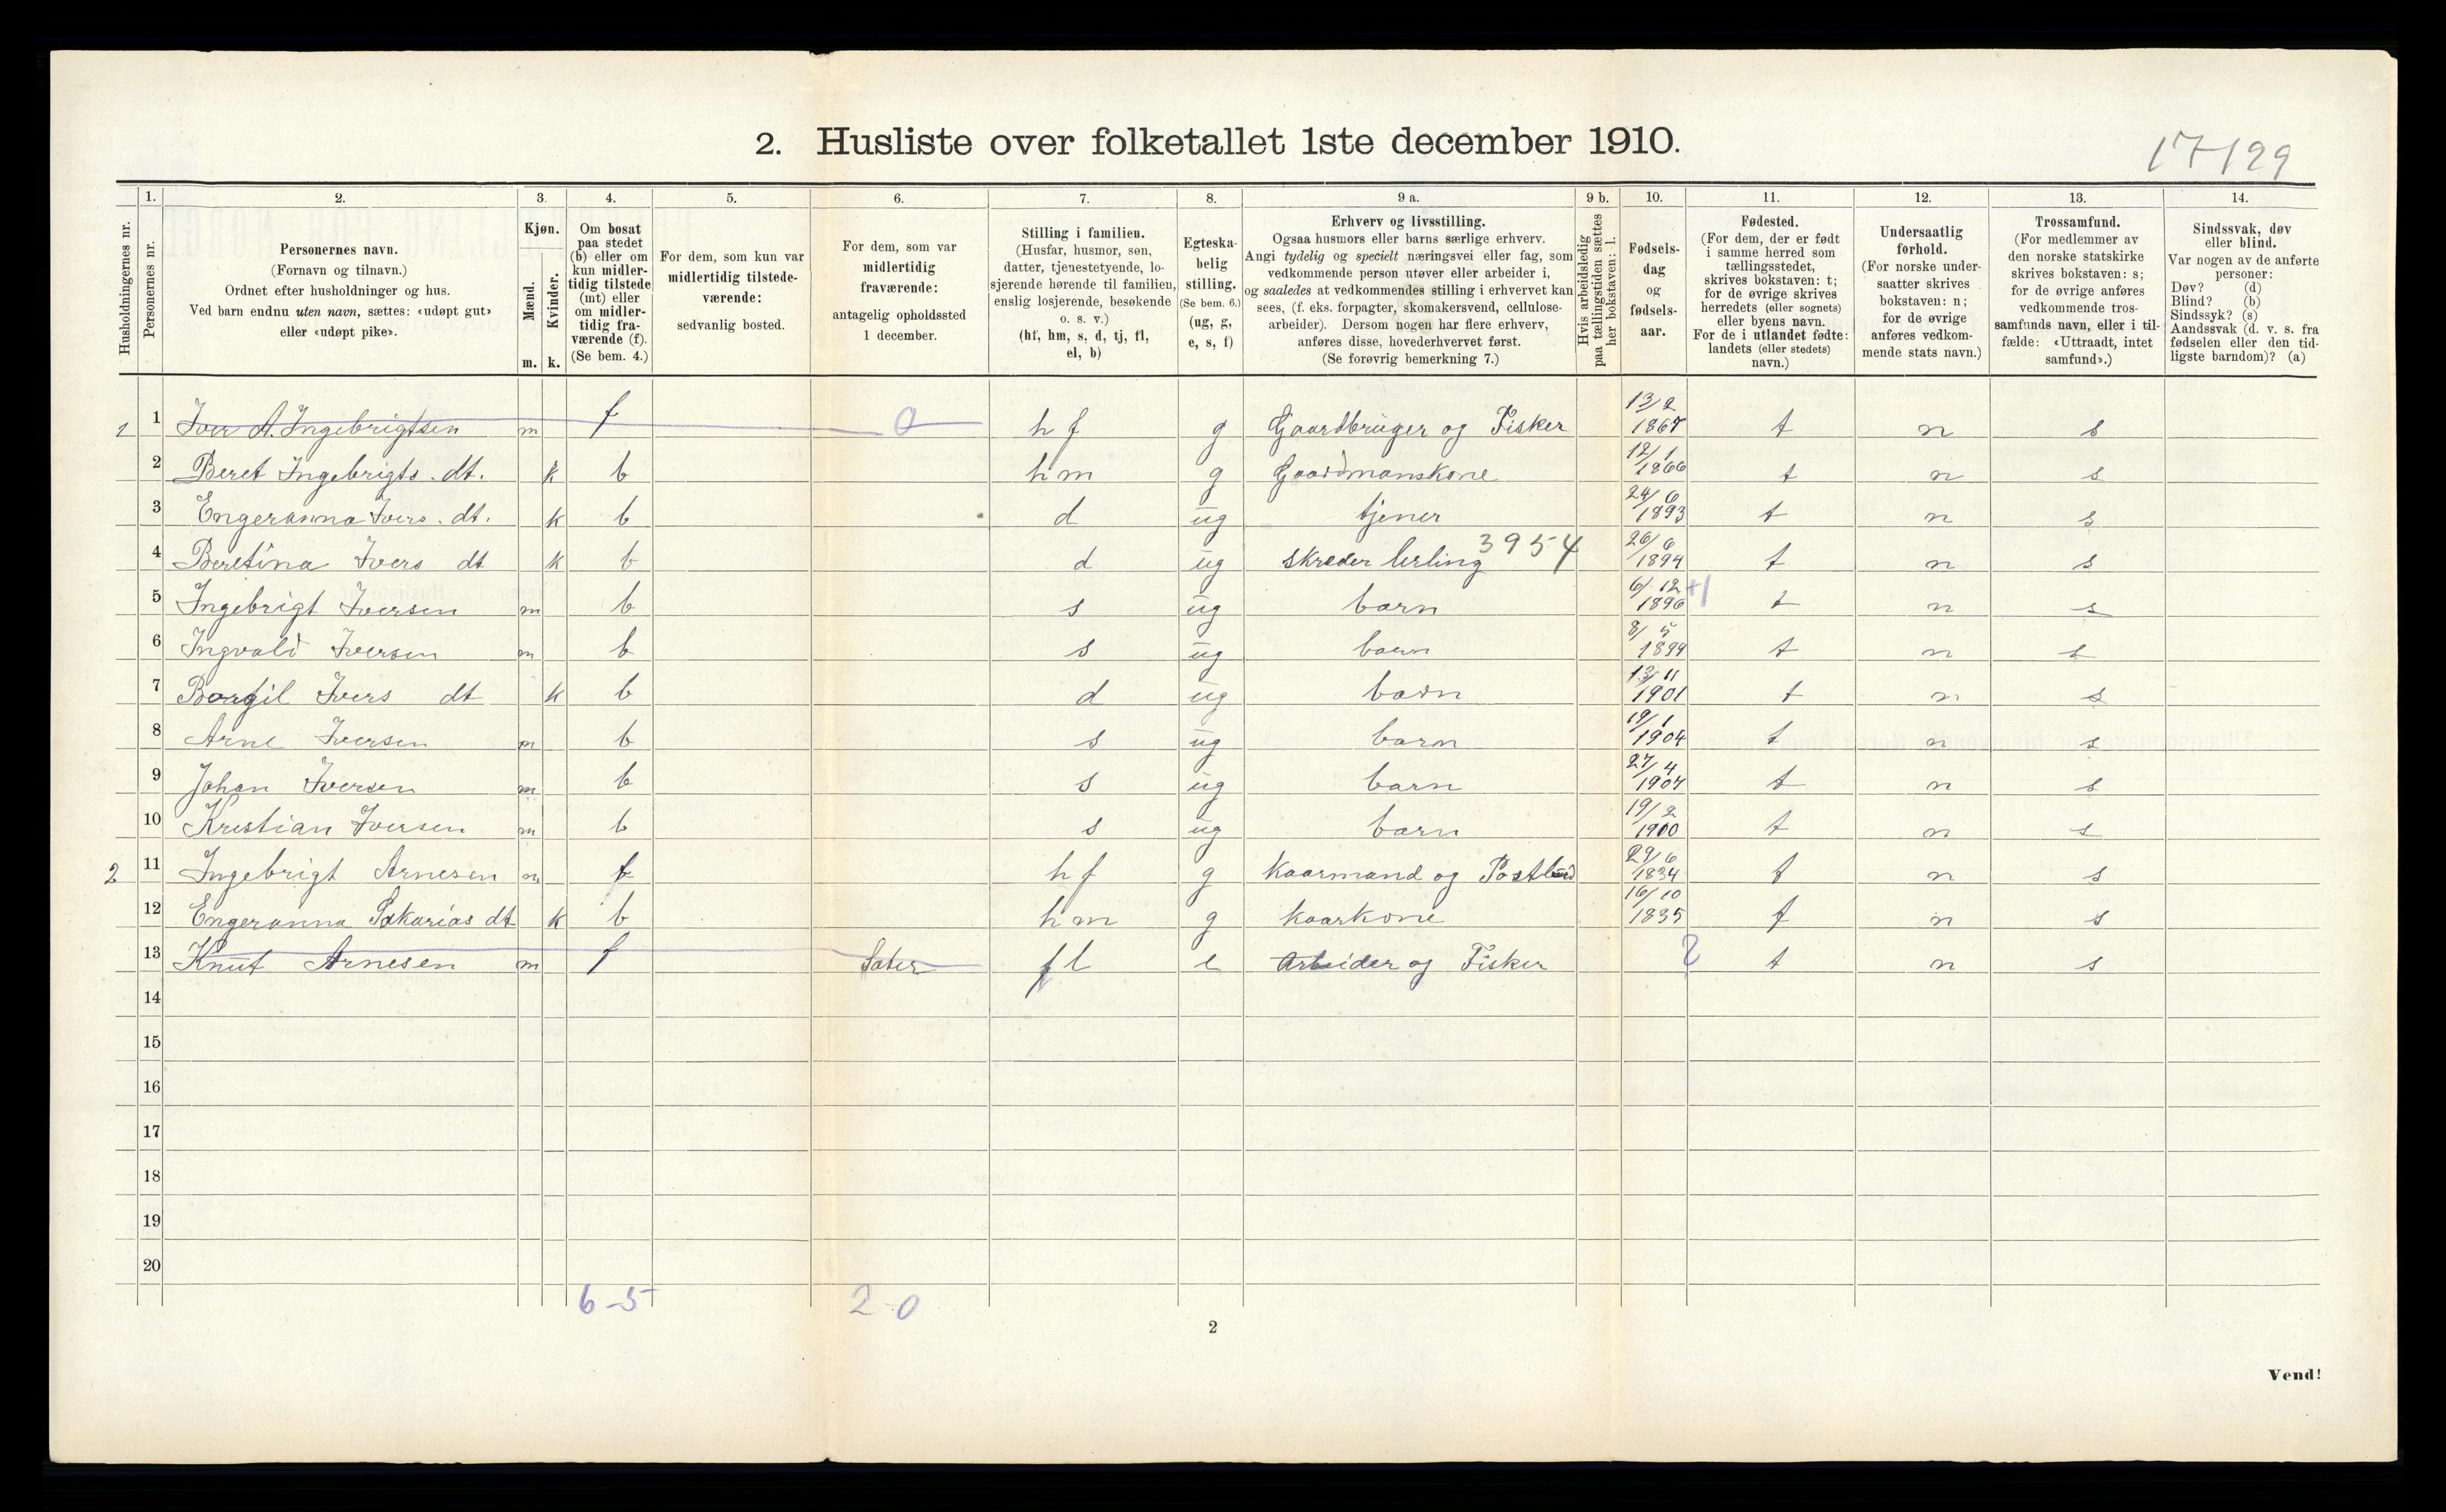 2. Husliste over folketallet 1ste december 1910.
17-129
Husholdningernes nr.
1.
Personernes nr.
2.
Personernes navn.
(Fornavn og tilnavn.)
Ordnet efter husholdninger og hus.
Ved barn endnu uten navn, sættes: «udøpt gut»
eller «udøpt pike».
3.
Kjøn.
Mænd.
Kvinder.
m. k.
4.
Om bosat
paa stedet
(b) eller om
kun midler-
tidig tilstede
(mt) eller
om midler-
tidig fra-
værende (f).
(Se bem. 4.)
5.
For dem, som kun var
midlertidig tilstede-
værende:
sedvanlig bosted.
6.
For dem, som var
midlertidig
fraværende:
antagelig opholdssted
1 december.
7.
Stilling i familien.
(Husfar, husmor, søn,
datter, tjenestetyende, lo-
sjerende hørende til familien,
enslig losjerende, besøkende
o. s. v.)
(hf, hm, s, d, tj, fl,
el, b)
8.
Egteska-
belig
stilling.
(Se bem. 6.)
(ug, g,
e, s, f)
9 a.
Erhverv og livsstilling.
Ogsaa husmors eller barns særlige erhverv.
Angi tydelig og specielt næringsvei eller fag, som
vedkommende person utøver eller arbeider i,
og saaledes at vedkommendes stilling i erhvervet kan
sees, (f. eks. forpagter, skomakersvend, cellulose-
arbeider). Dersom nogen har flere erhverv,
anføres disse, hovederhvervet først.
(Se forøvrig bemerkning 7.)
9 b.
Hvis arbeidsledig
paa tællingstiden sættes
her bokstaven: l.
10.
Fødsels-
dag
og
fødsels-
aar.
11.
Fødested.
(For dem, der er født
i samme herred som
tællingsstedet,
skrives bokstaven: t;
for de øvrige skrives
herredets (eller sognets)
eller byens navn.
For de i utlandet fødte:
landets (eller stedets)
navn.)
12.
Undersaatlig
forhold.
(For norske under-
saatter skrives
bokstaven: n;
for de øvrige
anføres vedkom-
mende stats navn.)
13.
Trossamfund.
(For medlemmer av
den norske statskirke
skrives bokstaven: s;
for de øvrige anføres
vedkommende tros-
samfunds navn, eller i til-
fælde: «Uttraadt, intet
samfund».)
14.
Sindssvak, døv
eller blind.
Var nogen av de anførte
personer:
Døv? (d)
Blind? (b)
Sindssyk? (s)
Aandssvak (d. v. s. fra
fødselen eller den tid-
ligste barndom)? (a)
1 1 Iver A. Ingebrigtsen m f 0 hf g Gaardbruger og Fisker 13/2 1867 t n s
2 Beret Ingebrigts. dt. k b hm g Gaardmanskone 12/1 1866 t n s
3 Engeranna Ivers. dt. k b d ug tjener 24/6 1893 t n s
4 Beretina Ivers dt k b d ug skreder lerling 3954 26/6 1894 t n s
5 Ingebrigt Iversen m b s ug barn 6/12 1896 +1 t n s
6 Ingvald Iversen m b s ug barn 8/5 1899 t n s
7 Borgil Ivers dt k b d ug barn 13/11 1901 t n s
8 Arne Iversen m b s ug barn 19/1 1904 t n s
9 Johan Iversen m b s ug barn 27/4 1907 t n s
10 Kristian Iversen m b s ug barn 19/2 1900 t n s
2 11 Ingebrigt Arnesen m b hf g Kaarmand og Postbud 29/6 1834 t n s
12 Engeranna Sakarias dt k b hm g Kaarkone 16/10 1835 t n s
13 Knut Arnesen m f fl e Arbeider og Fisker ? t n s
14
15
16
17
18
19
20
6-5 2-0
2
Vend!